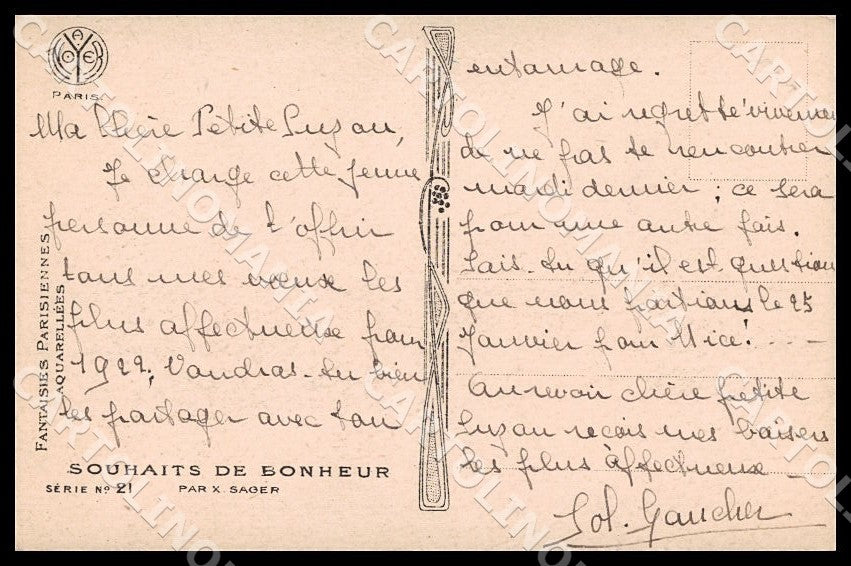 PARIS.
Ma Chère Pétite Suzon,
Je charge cette jeune
personne de t'offrir
tous mes voeux les
plus affectueux pour
1922; Voudras-tu bien
les partager avec ton
entourage.
J'ai regretté vivement
de ne pas te rencontrer
mardi dernier; ce sera
pour une autre fois.
Sais-tu qu'il est question
que nous partions le 25
Janvier pour Nice! ...
Au revoir chère petite
Suzon reçois mes baisers
les plus affectueux
Sol. Gaucher
FANTAISIES PARISIENNES
AQUARELLÉES
SOUHAITS DE BONHEUR
SÉRIE No 21 PAR X. SAGER
CARTOLINOMANIA